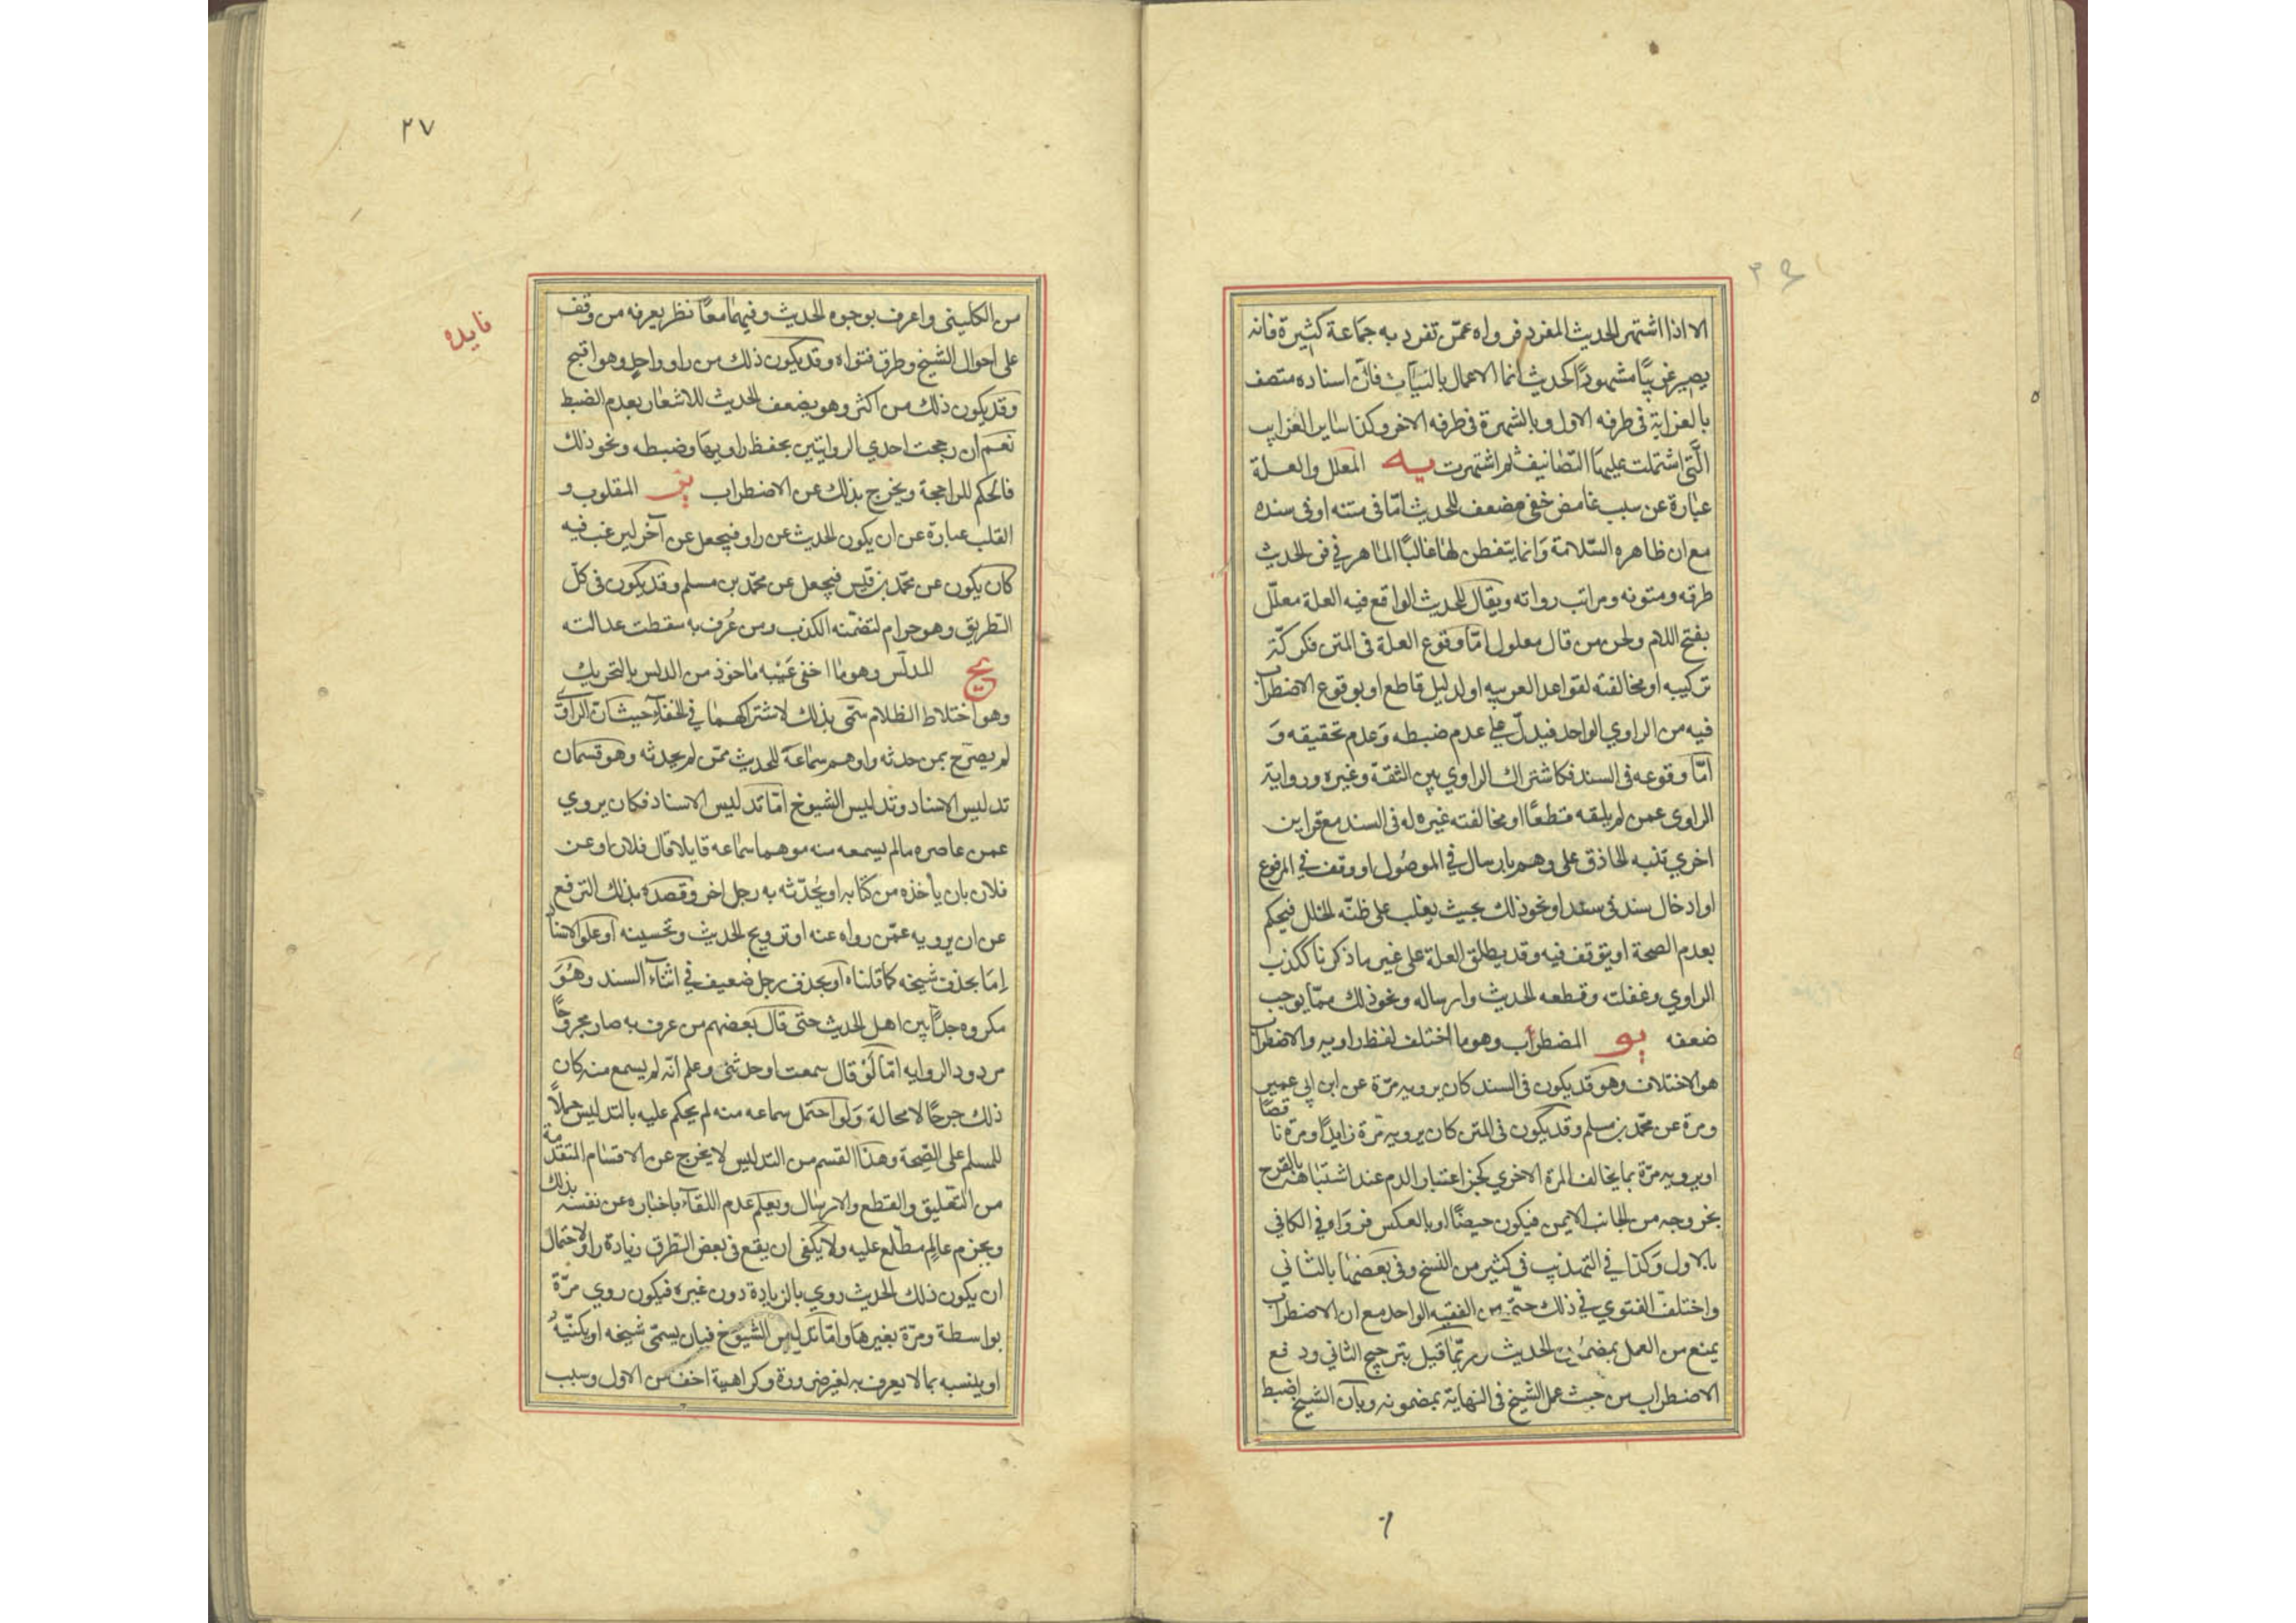 الا اذا اشتهر الحديث المفرد فرواه عمّن تفرد به جماعة كثيرة فانه
يصير غريبًا مشهورًا كحديث انما الاعمال بالنيات فانّ اسناده متصف
بالغرابة فى طرفه الاول وبالشهرة فى طرفه الاخر وكذا ساير الغرايب
الّتى اشتملت عليها التصانيف ثم اشتهرت يه المعلل والعلة
عبارة عن سبب غامض خفى مضعف للحديث امّا فى متنه او فى سنده
مع ان ظاهره السّلامة وانما يتفطن لها غالبًا الماهر في فن الحديث
طرقه ومتونه ومراتب رواته ويقال للحديث الواقع فيه العلة معلّل
بفتح اللام ولحن من قال معلول امّا وقوع العلة فى المتن فكركّة
تركيبه او مخالفته لقواعد العربيه او لدليل قاطع او بوقوع الاضطراب
فيه من الراوي الواحد فيدلّ على عدم ضبطه وَعدم تحقيقه وَ
امّا وقوعه فى السند فكاشتراك الراوي بين الثقة وغيره ورواية
الراوى عمن لم يلقه قطعًا او مخالفته غيره له فى السند مع قراين
اخري تنبه الحاذق على وهم بارسال في الموصُول او وقف في المرفوع
او ادخال سند فى سند او نحو ذلك بحيث يغلب على ظنّه الخلل فيحكم
بعدم الصحة او يتوقف فيه وقد يطلق العلة على غير ما ذكرنا ككذب
الراوي وغفلته وقطعه الحديث وارساله ونحو ذلك ممّا يوجب
ضعفه يو المضطرب وهو ما اختلف لفظ راويه والاضطراب
هو الاختلاف وهو قد يكون فى السند كان يرويه مرّة عن ابن ابي عمير
ومرة عن محمّد بن مسلم وقد يكون فى المتن كان يرويه مرّة زايدًا ومرّة ناقصًا
او يرويه مرّة بما يخالف المرة الاخري كخبر اعتبار الدم عند اشتباهه بالقرح
بخروجه من الجانب الايمن فيكون حيضًا او بالعكس فرَواه في الكافي
بالاول وَكذا في التهذيب فى كثير من النسخ وفى بَعضها بالثاني
واختلف الفتوي في ذلك حتّى من الفقيه الواحد مع ان الاضطراب
يمنع من العمل بمضمون الحديث وربّما قيل بترجيح الثاني ودفع
الاضطراب من حيث عمل الشيخ فى النهاية بمضمونه وبانّ الشيخ اضبط
٢٧
فايده
من الكلينى واعرف بوجوه الحديث وفيهما معًا نظر يعرفه من وقف
على احوال الشيخ وطرق فتواه وقد يكون ذلك من راو واحدٍ وهو اقبح
وقد يكون ذلك من اكثر وهو يضعف الحديث للاشعار بعدم الضبط
نعم ان رجحت احدي الروايتين بحفظ راويها وضبطه ونحو ذلك
فالحكم للراجحة ويخرج بذلك عن الاضطراب يز المقلوب و
القلب عبارة عن ان يكون الحديث عن راو فيجعل عن آخر ليرغب فيه
كان يكون عن محمّد بن قيس فيجعل عن محمّد بن مسلم وقد يكون فى كلّ
الطريق وهو حرام لتضمّنه الكذب ومن عُرف به سقطت عدالته
يح المدلّس وهو ما اخفى عَيْبه ماخوذ من الدلس بالتحريك
وهو اختلاط الظلام سمّى بذلك لاشتراكهما في الخفآء حيث ان الراوي
لم يصرّح بمن حدثه واوهم سماعهَ للحديث ممّن لم يحدثه وهو قسمان
تدليس الاسناد وتدليس الشيوخ امّا تدليس الاسناد فكان يروي
عمن عاصره ما لم يسمعه منه موهما سماعه قايلا قال فلان او عن
فلان بان يأخذه من كتابه او يُحدّثه به رجل اخر وقصده بذلك الترفع
عن ان يرويه عمّن رواه عنه او ترويج الحديث وتحسينه او علو الاسناد
اِمّا بحذف شيخه كما قلناه او بحذف رجل ضعيف في اثناء السند وهُوَ
مكروه جدًّا بين اهل الحديث حتى قال بعضهم من عرف به صار مجروحًا
مردود الروايه امّا لَوْ قال سمعت او حدثنى وعلم انّه لم يسمع منه كان
ذلك جرحًا لا محالة وَلو احتمل سماعه منه لم يحكم عليه بالتدليس حملًا
للمسلم على الصِّحة وهذا القسم من التدليس لا يخرج عن الاقسام المتقدمة
من التعليق والقطع والارسال ويعلم عدم اللقآء باخباره عن نفسه بذلك
وبجزم عالِم مطّلع عليه ولا يكفى ان يقع فى بعض الطرق زيادة راو لاحتمال
ان يكون ذلك الحديث روي بالزيادة دون غيره فيكون روي مرّة
بواسطة ومرّة بغيرها وامّا تدليس الشيوخ فبان يسمّى شيخه او يكنّيهُ
او ينسبه بما لا يعرف به لغير ضرورة وكراهية اخف من الاول وسبب